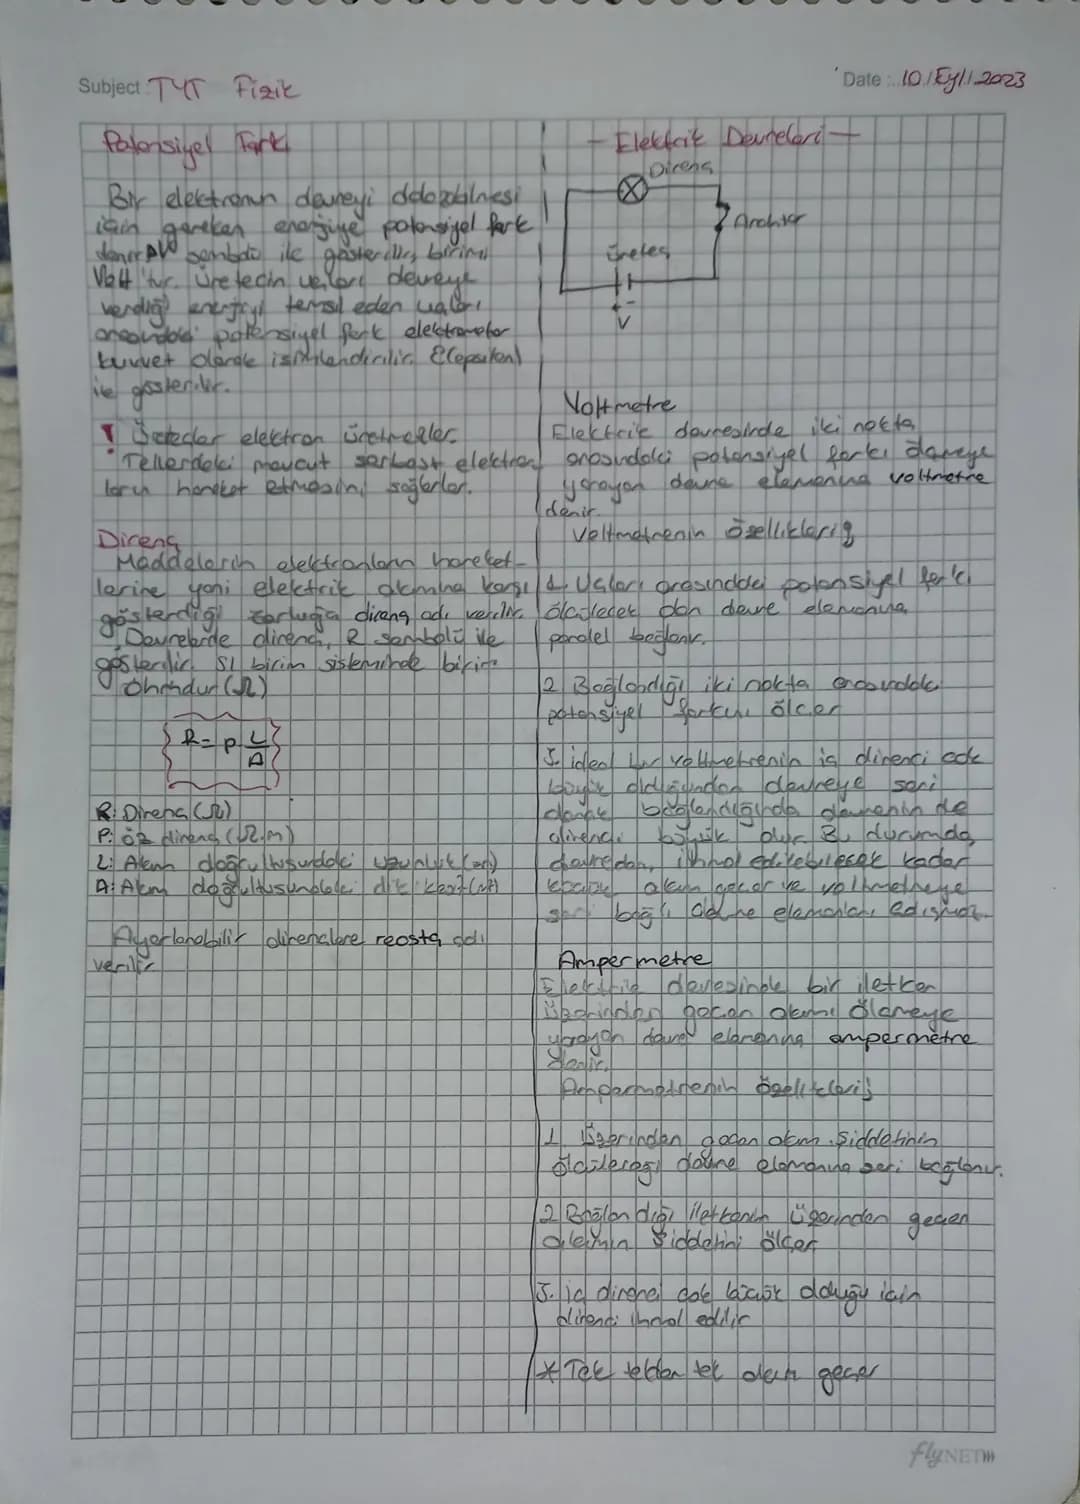 Subject: TYT Fizik
Date: 10/Eyl/2023
Potansiyel Fark
Bir elektronun devreyi dolaşabilmesi
için gereken enerjiye potansiyel fark
denir ΔV sembolü ile gösterilir, birimi
Volt'tur. Üretecin uçları devreye
verdiği enerjiyi temsil eden uçları
arasındaki potansiyel fark elektromotor
kuvvet olarak isimlendirilir. Ɛ(epsilon)
ile gösterilir.
! Üreteçler elektron üretmezler.
Tellerdeki mevcut serbest elektron
ların hareket etmesini sağlarlar.
Direnç
Maddelerin elektronların hareket-
lerine yani elektrik akımına karşı
gösterdiği zorluğa direnç adı verilir.
Devrelerde direnç, R sembolü ile
gösterilir. SI birim sisteminde birimi
Ohmdur (Ω)
R = p L/A
R: Direnç (Ω)
P: öz direnç (Ω.m)
L: Akım doğrultusundaki uzunluk
A: Akım doğrultusundaki dik kesit
Ayarlanabilir dirençlere reosta adı
verilir
- Elektrik Devreleri -
Direnç
Anahtar
Üreteç
+ -
V
Voltmetre
Elektrik devresinde iki nokta
arasındaki potansiyel farkı
yarayan devre elemanına voltmetre
denir.
Voltmetrenin özellikleri;
1. Uçları arasındaki potansiyel farkı
ölçülecek olan devre elemanına
paralel bağlanır.
2 Bağlandığı iki nokta arasındaki
potansiyel farkını ölçer
3 ideal bir voltmetrenin iç direnci çok
büyük olduğundan devreye seri
olarak bağlandığında devrenin de
direnci büyük olur Bu durumda,
devreden, ihmal edilebilecek kadar
küçük akım geçer ve voltmetreye
seri bağlı devre elemanları çalışmaz.
Ampermetre
Elektrik devresinde bir iletken
üzerinden geçen akımı ölçmeye
yarayan devre elemanına ampermetre
denir.
Ampermetrenin özellikleri;
1. Üzerinden geçen akım şiddetinin
ölçüleceği devre elemanına seri bağlanır.
2 Bağlandığı iletkenin üzerinden geçen
akımın şiddetini ölçer
3. iç direnci çok küçük olduğu için
direnci ihmal edilir
* Tek telden tek akım geçer
flyNETm